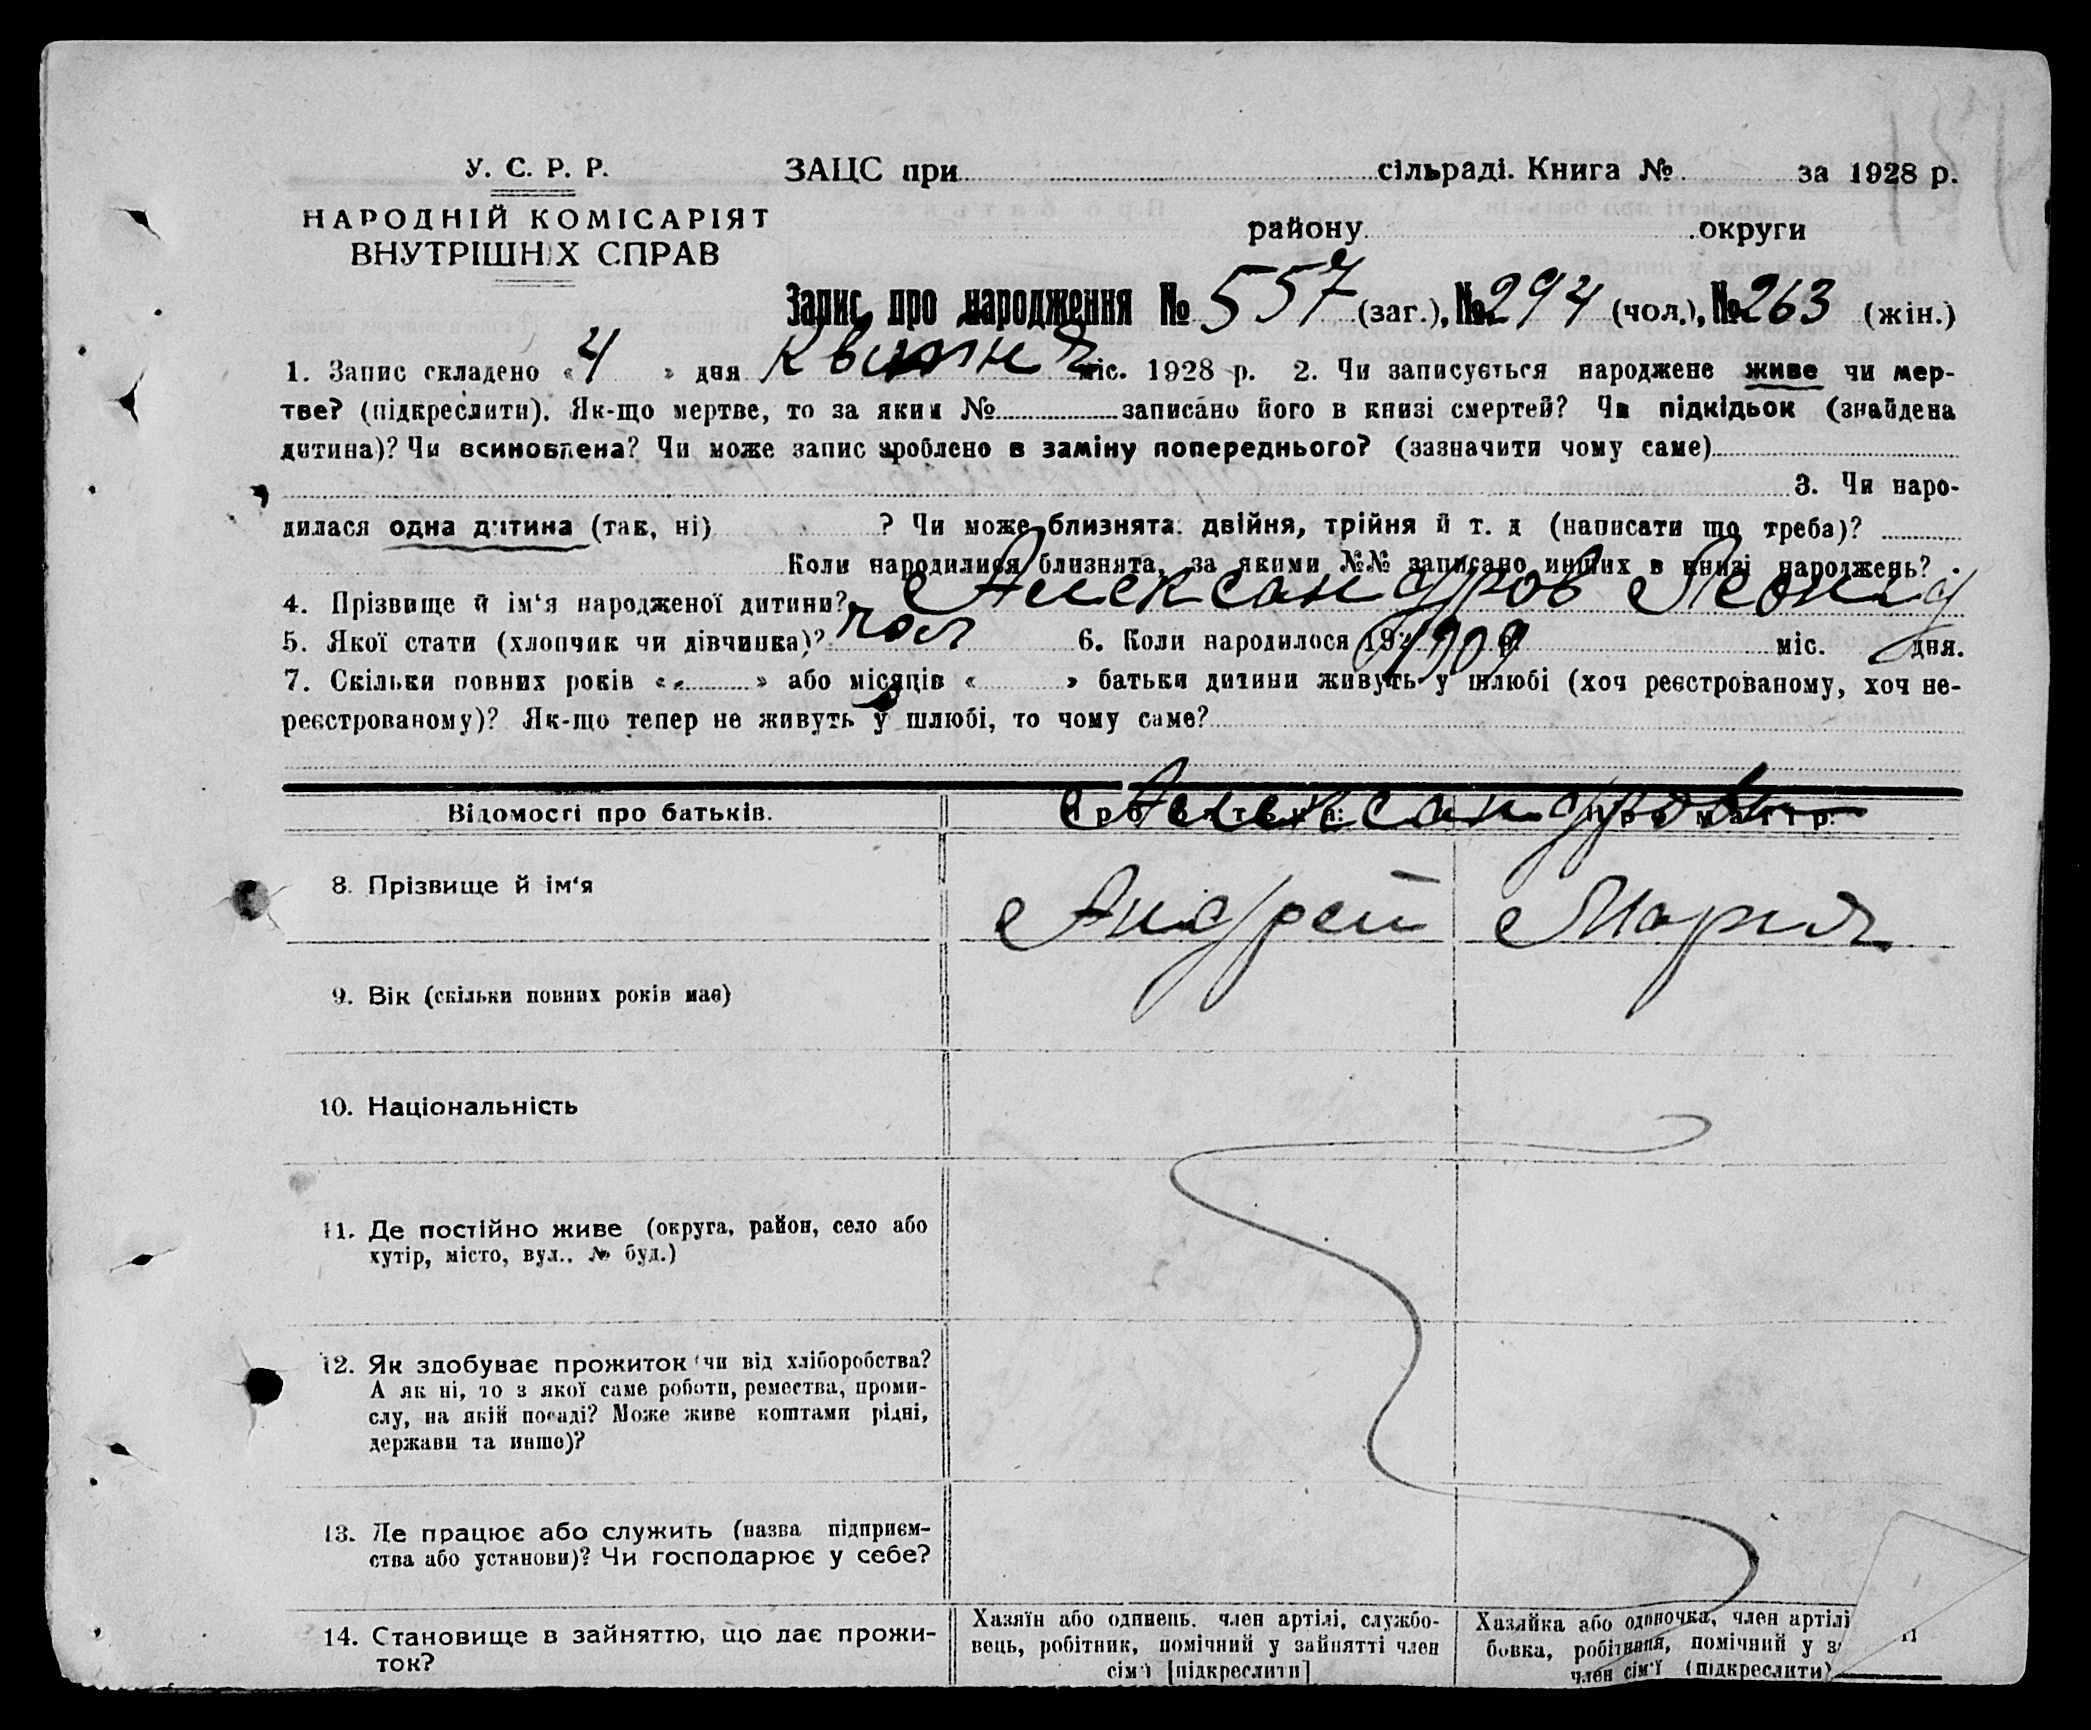 У. С. Р. Р.
НАРОДНІЙ КОМІСАРІЯТ
ВНУТРІШНІХ СПРАВ
ЗАЦС при сільраді. Книга № за 1928 р.
району округи
Запис про народження № 557 (заг.), № 294 (чол.), № 263 (жін.)
1. Запис складено « 4 » дня квітня міс. 1928 р. 2. Чи записується народжене живе чи мер-
тве? (підкреслити). Як-що мертве, то за яким № записано його в книзі смертей? Чи підкідьок (знайдена
дитина)? Чи всиновлена? Чи може запис зроблено в заміну попереднього? (зазначити чому саме)
3. Чи наро-
дилася одна дитина (так, ні) ? Чи може близнята: двійня, трійня й т. д (написати що треба)?
Коли народилися близнята, за якими №№ записано инших в книзі народжень?
4. Прізвище й ім‘я народженої дитини? Александров Леонид
5. Якої стати (хлопчик чи дівчинка)? чол 6. Коли народилося 192 1909 р. міс. дня.
7. Скільки повних років « » або місяців « » батьки дитини живуть у шлюбі (хоч реєстрованому, хоч не-
реєстрованому)? Як-що тепер не живуть у шлюбі, то чому саме?
Відомості про батьків. Про батька: Про матір:
Александровы
8. Прізвище й ім‘я Андрей Мария
9. Вік (скільки повних років має)
10. Національність
11. Де постійно живе (округа, район, село або
хутір, місто, вул., № буд.)
12. Як здобуває прожиток (чи від хліборобства?
А як ні, то з якої саме роботи, ремества, проми-
слу, на якій посаді? Може живе коштами рідні,
держави та инше)?
13. Де працює або служить (назва підприєм-
ства або установи)? Чи господарює у себе?
14. Становище в зайняттю, що дає прожи-
ток?
Хазяїн або одинець, член артілі, службо-
вець, робітник, помічний у зайнятті член
сім‘ї [підкреслити]
Хазяйка або одиночка, член артілі
бовка, робітниця, помічний у з
член сім‘ї (підкреслити)